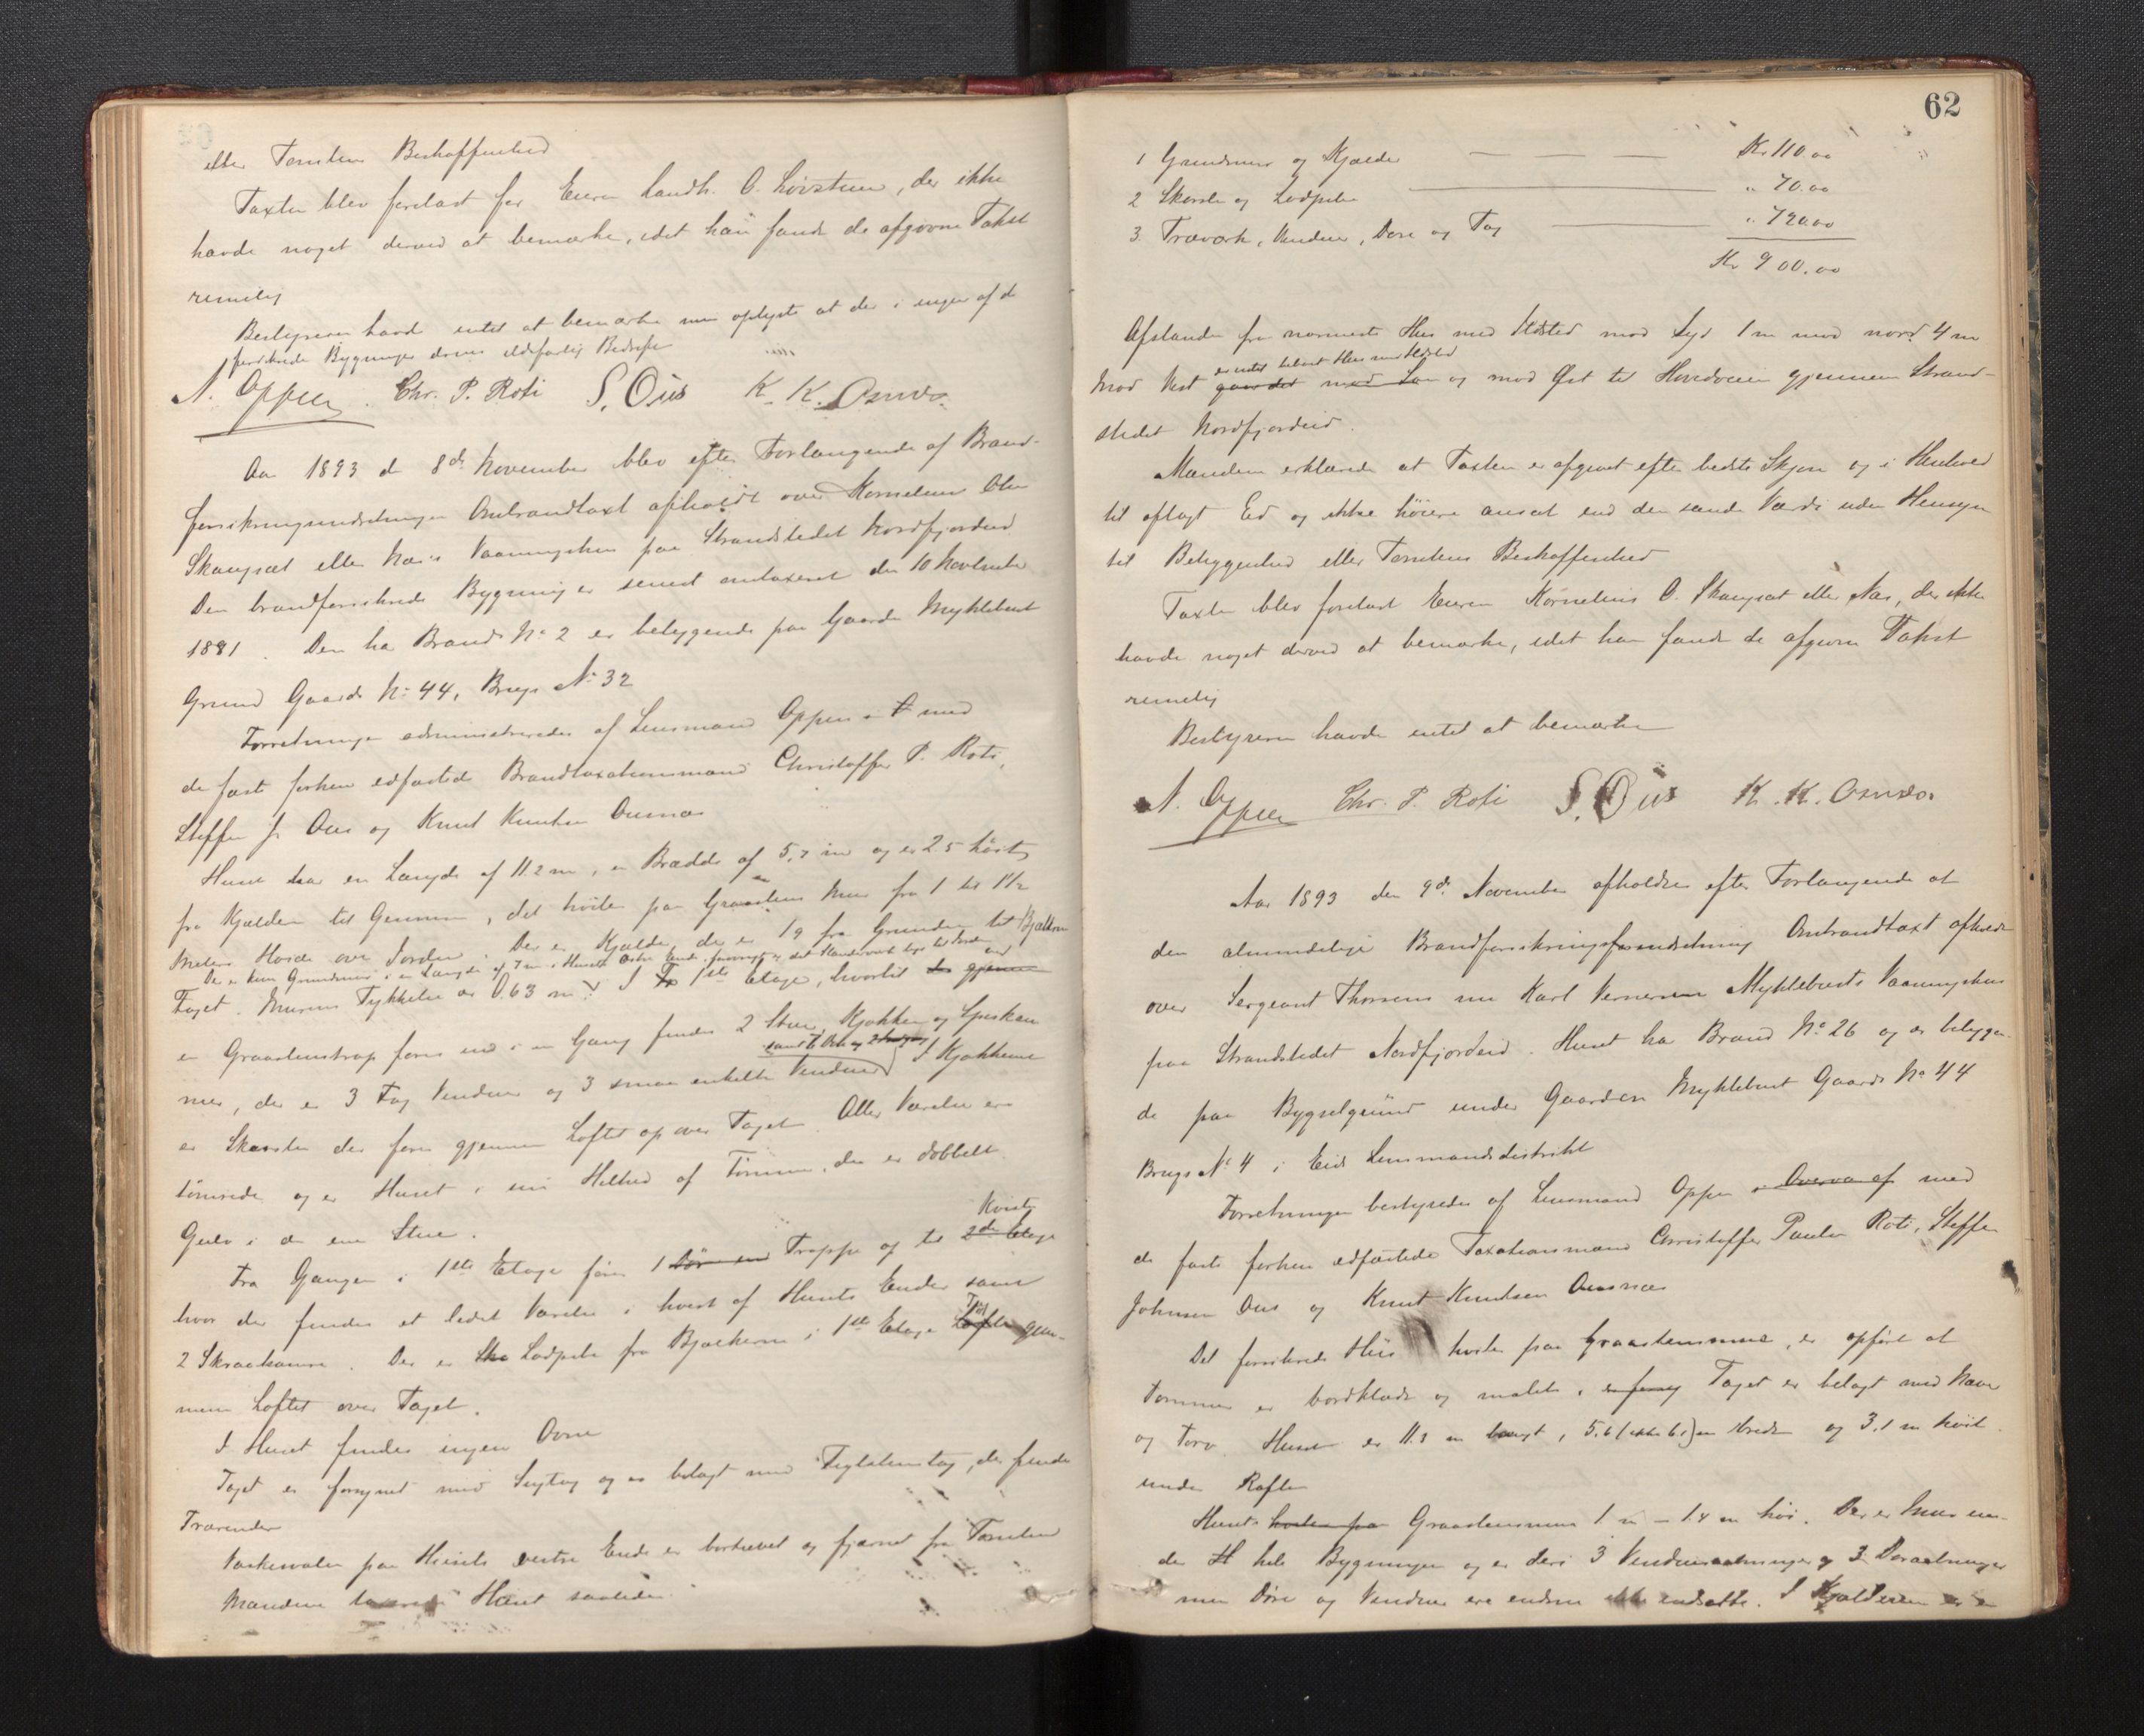 eller Tomtens Beskaffenhed
Taxten blev forelæst for Eieren Landh. O. Løvsteen, der ikke
havde noget derved at bemærke, idet han fandt de afgivne Takst
rimelig
Bestyreren havde intet at bemærke men oplyste at der i ingen af de
forsikrede Bygninger drives ildsfarlig Bedrift
N. Oppen Chr. P. Roti S. Øus K. K. Osnæs.
Aar 1893 d 8de November blev efter Forlangende af Brand-
forsikringsindretningen Ombrandtaxt afholdt over Kornelius Ols
Skaugsæt eller Næs Vaaningshus paa Strandstedet Nordfjordeid
Den brandforsikrede Bygning er senest omtaxeret den 10 November
1881. Den har Brand No 2 er beliggende paa Gaarden Myklebust
Grund Gaards No 44, Brugs No 32
Forretningen administreredes af Lensmand Oppen med
de fast forhen edfæstede Brandtaxationsmænd Christoffer P. Roti,
Steffen J. Øus og Knud Knudsen Osnæs
Huset har en Længde af 11.2 m, en Bredde af 5,7 m og er 2 5 høit
fra Kjælderen til Gesimsen, det hviler paa Graastens Mur fra 1 til 1 1/2
Meters Høide over Jorden. Der er Kjælder, der er 1 9 fra Grunden til Bjælken
Der er kun Grundmur i en Længde af 7 m i Husets østre Ende,
Taget. Murens Tykkelse er 0.63 m. I 1ste Etage, hvortil der gjennem
en Graastenstrap føres ind i en Gang findes 2 Stuer, Kjøkken og Speskam
mer, der er 3 Fag Vinduer og 3 smaa enkelte Vinduer I Kjøkkenet
er Skorsten der fører gjennem Loftet op over Taget. Alle Værelser ere
tømrede og er Huset i sin Helhed af Tømmer, der er dobbelt
Gulv i den ene Stue.
Kvist
Fra Gangen i 1ste Etage fører 1 Dør en Trappe op til 2den Etage
hvor der findes et lidet Værelse i hvert af Husets Ender samt
2 Skraakamre. Der er Ska Lodpibe fra Bjælkerne i 1ste Etage Loftet gjen-
nem Loftet over Taget.
I Huset findes ingen Ovne
Taget er forsynet med Sugtag og er belagt med Teglstenstag, der findes
Trærender
Vaskevalen paa Husets vestre Ende er bortrevet og fjernet fra Tomten
Mændene taxerede Huset saaledes:
62
1 Grundmur og Kjælder — — — Kr 110.00
2 Skorsten og Lodpibe — " 70.00
3 Træværk, Vinduer, Døre og Tag — " 720.00
Kr 900.00
Afstanden fra nærmeste Hus med Ildsted mod Syd 1 m mod nord 4 m
er intet beboet Hus med Ildsted
mod Vest gaar det mod Søen og mod Øst til Hovedveien gjennem Strand-
stedet Nordfjordeid.
Mændene erklærede at Taxten er afgivet efter bedste Skjøn og i Henhold
til aflagt Ed og ikke høiere ansat end den sande Værdi uden Hensyn
til Beliggenhed eller Tomtens Beskaffenhed
Taxten blev forelæst Eieren Kornelius O. Skaugsæt eller Næs, der ikke
havde noget derved at bemærke, idet han fandt de afgivne Takst
rimelig
Bestyreren havde intet at bemærke
N. Oppen Chr. P. Roti S. Øus K. K. Osnæs.
Aar 1893 den 9de November afholdtes efter Forlangende af
den almindelige Brandforsikringsforindretning Ombrandtaxt afholdt
over Sergeant Thorsens nu Karl Vernersen Myklebusts Vaaningshus
paa Strandstedet Nordfjordeid. Huset har Brand No 26 og er beliggen-
de paa Bygselgrund under Gaarden Myklebust Gaards No 44
Brugs No 4 i Eids Lensmandsdistrikt
Forretningen bestyredes af Lensmand Oppen Overvær af med
de faste forhen edfæstede Taxationsmænd Christoffer Paulsen Roti, Steffen
Johnsen Øus og Knut Knutsen Osnæs
Det forsikrede Hus hviler paa Graastensmur, er opført af
Tømmer er bordklædt og malet, Taget er belagt med Næver
og Torv. Huset er 11.3 m langt, 5.6 (ikke 6.) m bredt og 3.1 m høit
under Raftet
Husets hviler paa Graastensmur 1 m – 1.4 m høi. Der er Mur un-
der hele Bygningen og er deri 3 Vinduesaabninger og 3 Døraabninger
men Døre og Vinduer ere endnu ikke indsatte. I Kjælderen er en